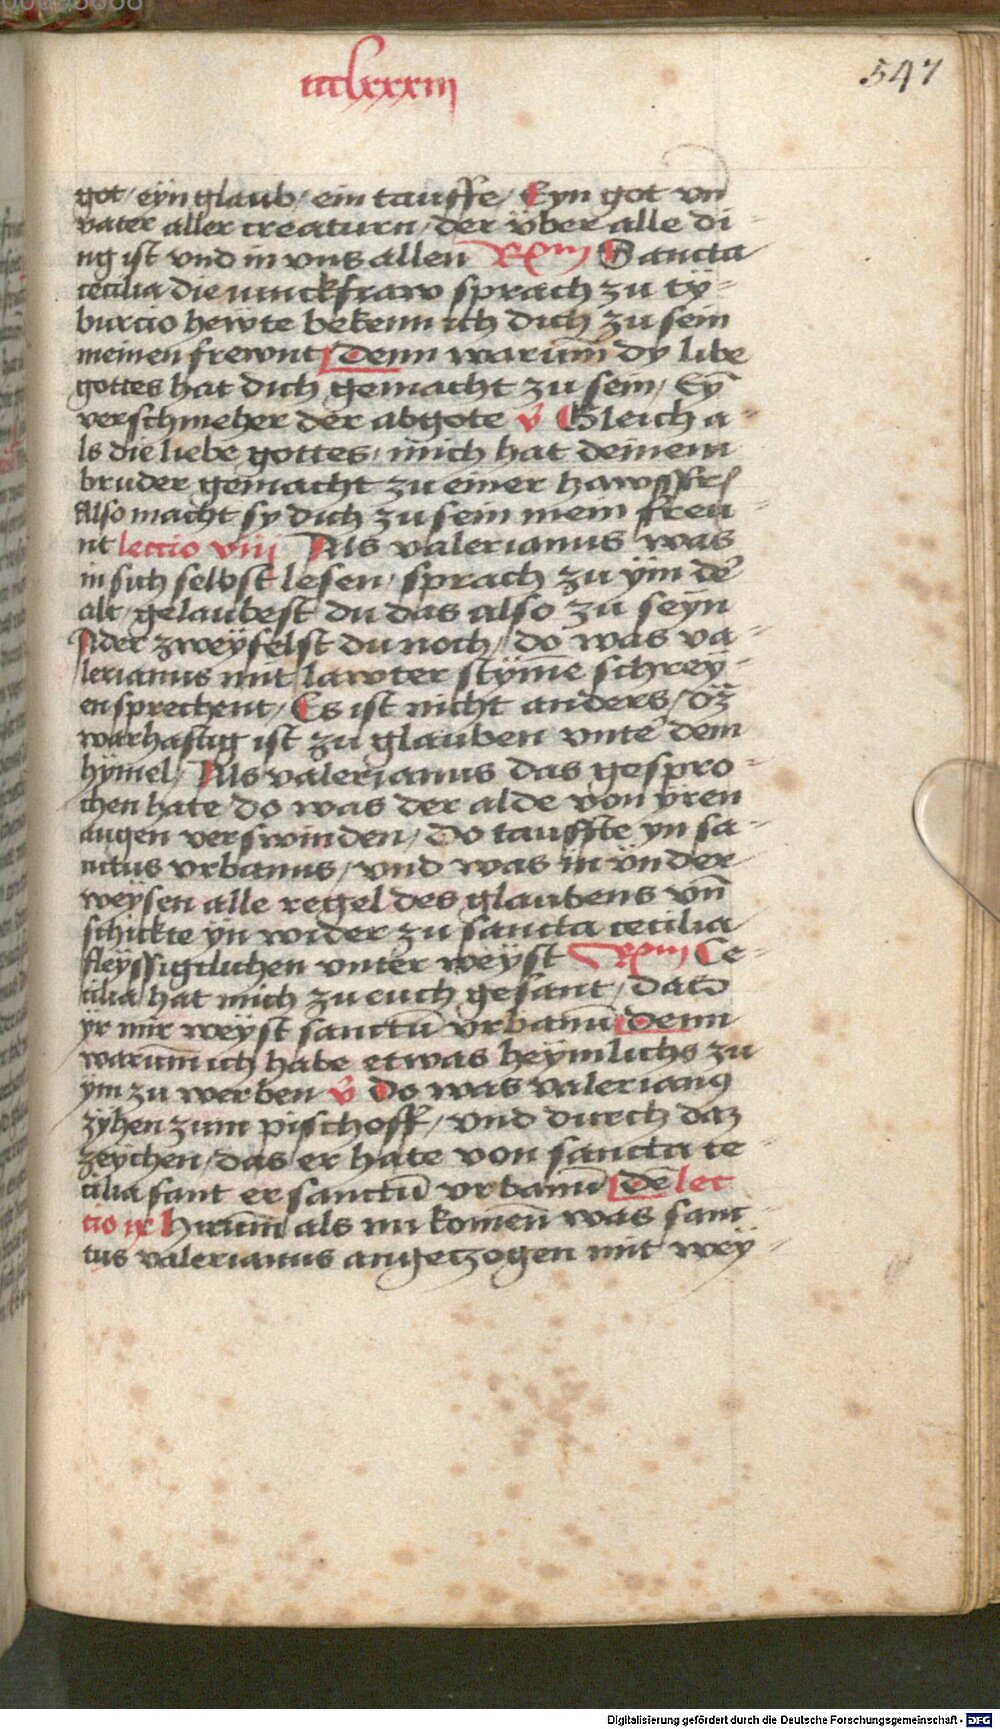 ccclxxxiii
547
got / eÿn glaub / ein tauffe / Eyn got vn̄
vater aller creaturn / der ÿber alle di-
ng ist vnd in vns allen Sancta
cecilia die iunckfraw sprach zu tÿ-
burcio hewte bekenn ich dich zu sein
meinen frewnt Denn warum̄ dy libe
gottes hat dich gemacht zu sein / Eȳ
verschmeher der abgote v̄ Gleich a-
ls die liebe gottes / mich hat deinem
bruder gemacht zu einer hawsffr
Also macht sy dich zu sein mein freu-
nt lectio viii Als valerianus was
in sich selbst lesen / sprach zu ÿm de᷑
alt / gelaubest du das also zu seyn
Ader zweÿfelst du noch / do was va-
lerianus mit lawter stÿm̄e schreÿ-
en sprechent / Es ist nicht anders / dz̄
warhastig ist zu glauben vnte᷑ dem
hÿmel / Als valerianus das gespro-
chen hate do was der alde von ÿren
augen verswinden / Do tauffte yn sa-
nctus vrbanus / vnd was in ÿnder-
weÿsen alle regel des glaubens vn̄
schickte ÿn wider zu sancta cecilia
fleÿssigclichen vnter weÿst Ce-
cilia hat mich zu euch gesant /
ÿr mir weÿst sanctū vrbanū denn
warum̄ ich habe etwas heÿmlichs zu
ÿm zu werben v̄ Do was valerianꝰ
zÿhen zum pischoff / vnd durch daz
zeÿchen / das er hate von sancta ce-
cilia fant er sanctū vrbanū dē lec
cio ix Hirum̄ als nu komen̄ was sanc-
tus valerianus angeczogen mit weÿ-
Digitalisierung gefördert durch die Deutsche Forschungsgemeinschaft - DFG